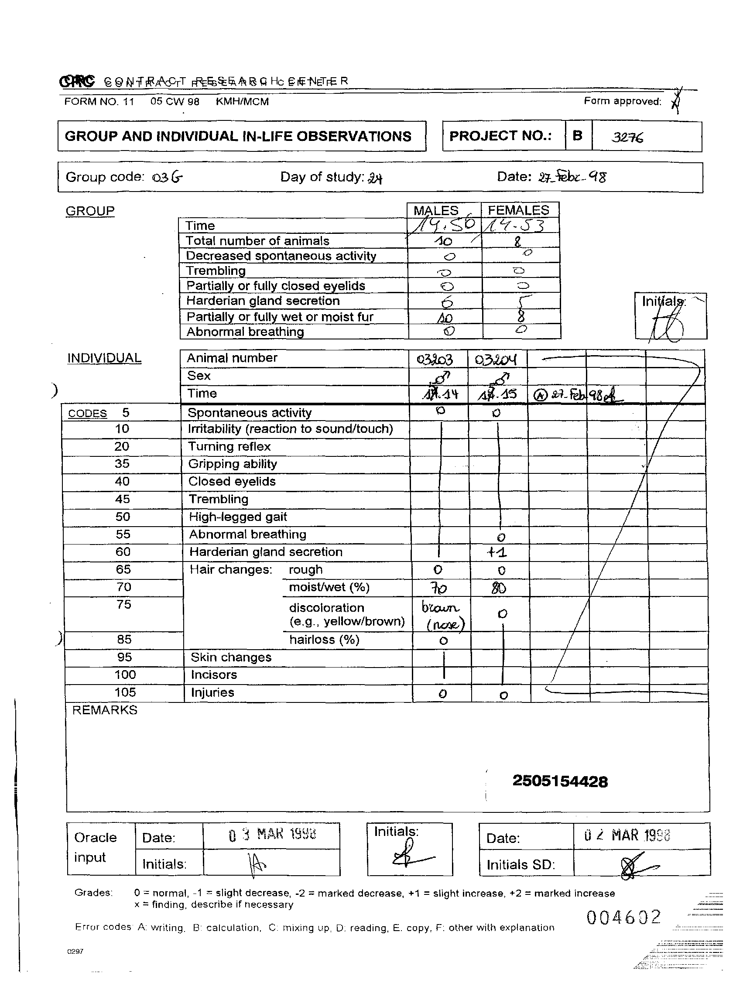 CRC CONTRACT RESEARCH CENTER
FORM NO. 11 05 CW 98 KMH/MCM Form approved:
GROUP AND INDIVIDUAL IN-LIFE OBSERVATIONS PROJECT NO.: B 3276
Group code: 03G Day of study: 24 Date: 27-Febr-98
GROUP MALES FEMALES
Time 14.50 14.53
Total number of animals 10 8
Decreased spontaneous activity 0 0
Trembling 0 0
Partially or fully closed eyelids 0 0
Harderian gland secretion 6 5
Partially or fully wet or moist fur 10 8
Abnormal breathing 0 0
Initials:
INDIVIDUAL Animal number 03203 03204
Sex ♂ ♂
Time 14 15 Ⓐ 27-Feb 98
CODES 5 Spontaneous activity 0 0
10 Irritability (reaction to sound/touch)
20 Turning reflex
35 Gripping ability
40 Closed eyelids
45 Trembling
50 High-legged gait
55 Abnormal breathing 0
60 Harderian gland secretion +1
65 Hair changes: rough 0 0
70 moist/wet (%) 70 80
75 discoloration brown 0
(e.g., yellow/brown) (nose)
85 hairloss (%) 0
95 Skin changes
100 Incisors
105 Injuries 0 0
REMARKS
2505154428
Oracle input Date: 03 MAR 1998 Initials: Date: 02 MAR 1998
Initials: Initials SD:
Grades: 0 = normal, -1 = slight decrease, -2 = marked decrease, +1 = slight increase, +2 = marked increase
x = finding, describe if necessary
004602
Error codes A: writing, B: calculation, C: mixing up, D: reading, E: copy, F: other with explanation
0297